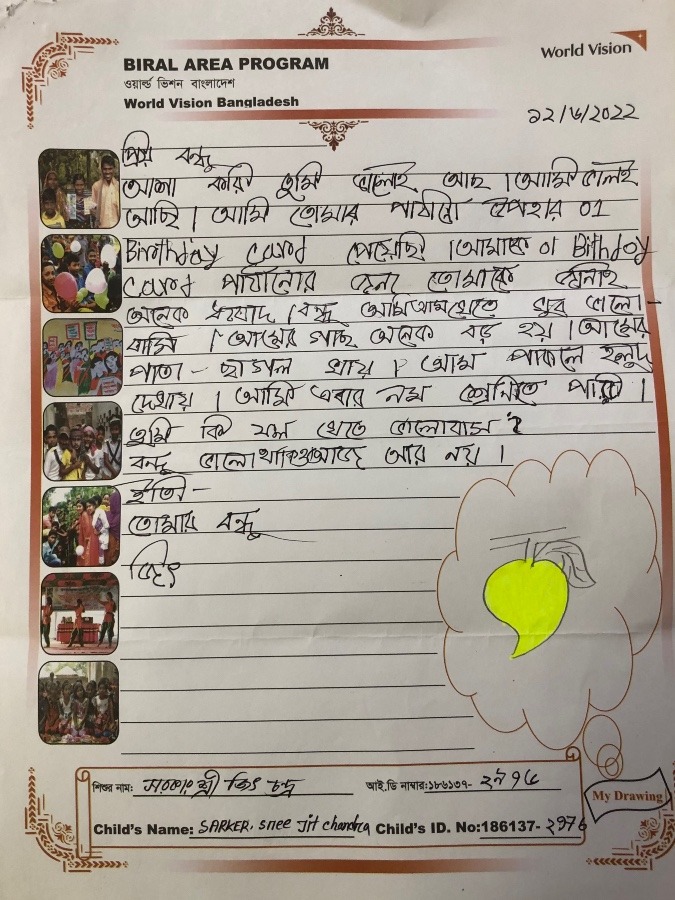 World Vision
BIRAL AREA PROGRAM
ওয়ার্ল্ড ভিশন বাংলাদেশ
World Vision Bangladesh
১২/৬/2022
প্রিয় বন্ধু
আশা করি তুমি ভালোই আছ। আমি ভালই
আছি। আমি তোমার পাঠানো উপহার 01
Birothday Card পেয়েছি। আমাকে 01 Bithdoy
Card পাঠানোর জন্য তোমাকে জানাই
অনেক ধন্যবাদ। বন্ধু আমি আম খেতে খুব ভালো-
বাসি। আমের গাছ অনেক বড় হয়। আমের
পাতা - ছাগল খায়। আম পাকলে হলুদ
দেখায়। আমি এবার নবম শ্রেনিতে পড়ি।
তুমি কি ফল খেতে ভালোবাস?
বন্ধু ভালো থাকিও আজ আর নয়।
ইতি-
তোমার বন্ধু
জিৎ
শিশুর নাম: সরকার শ্রী জিৎ চন্দ্র আই.ডি নাম্বার:১৮৬১৩৭- ২৯৭৬
My Drawing
Child's Name: SARKER, Snee Jit chandra Child's ID. No:186137- 2976